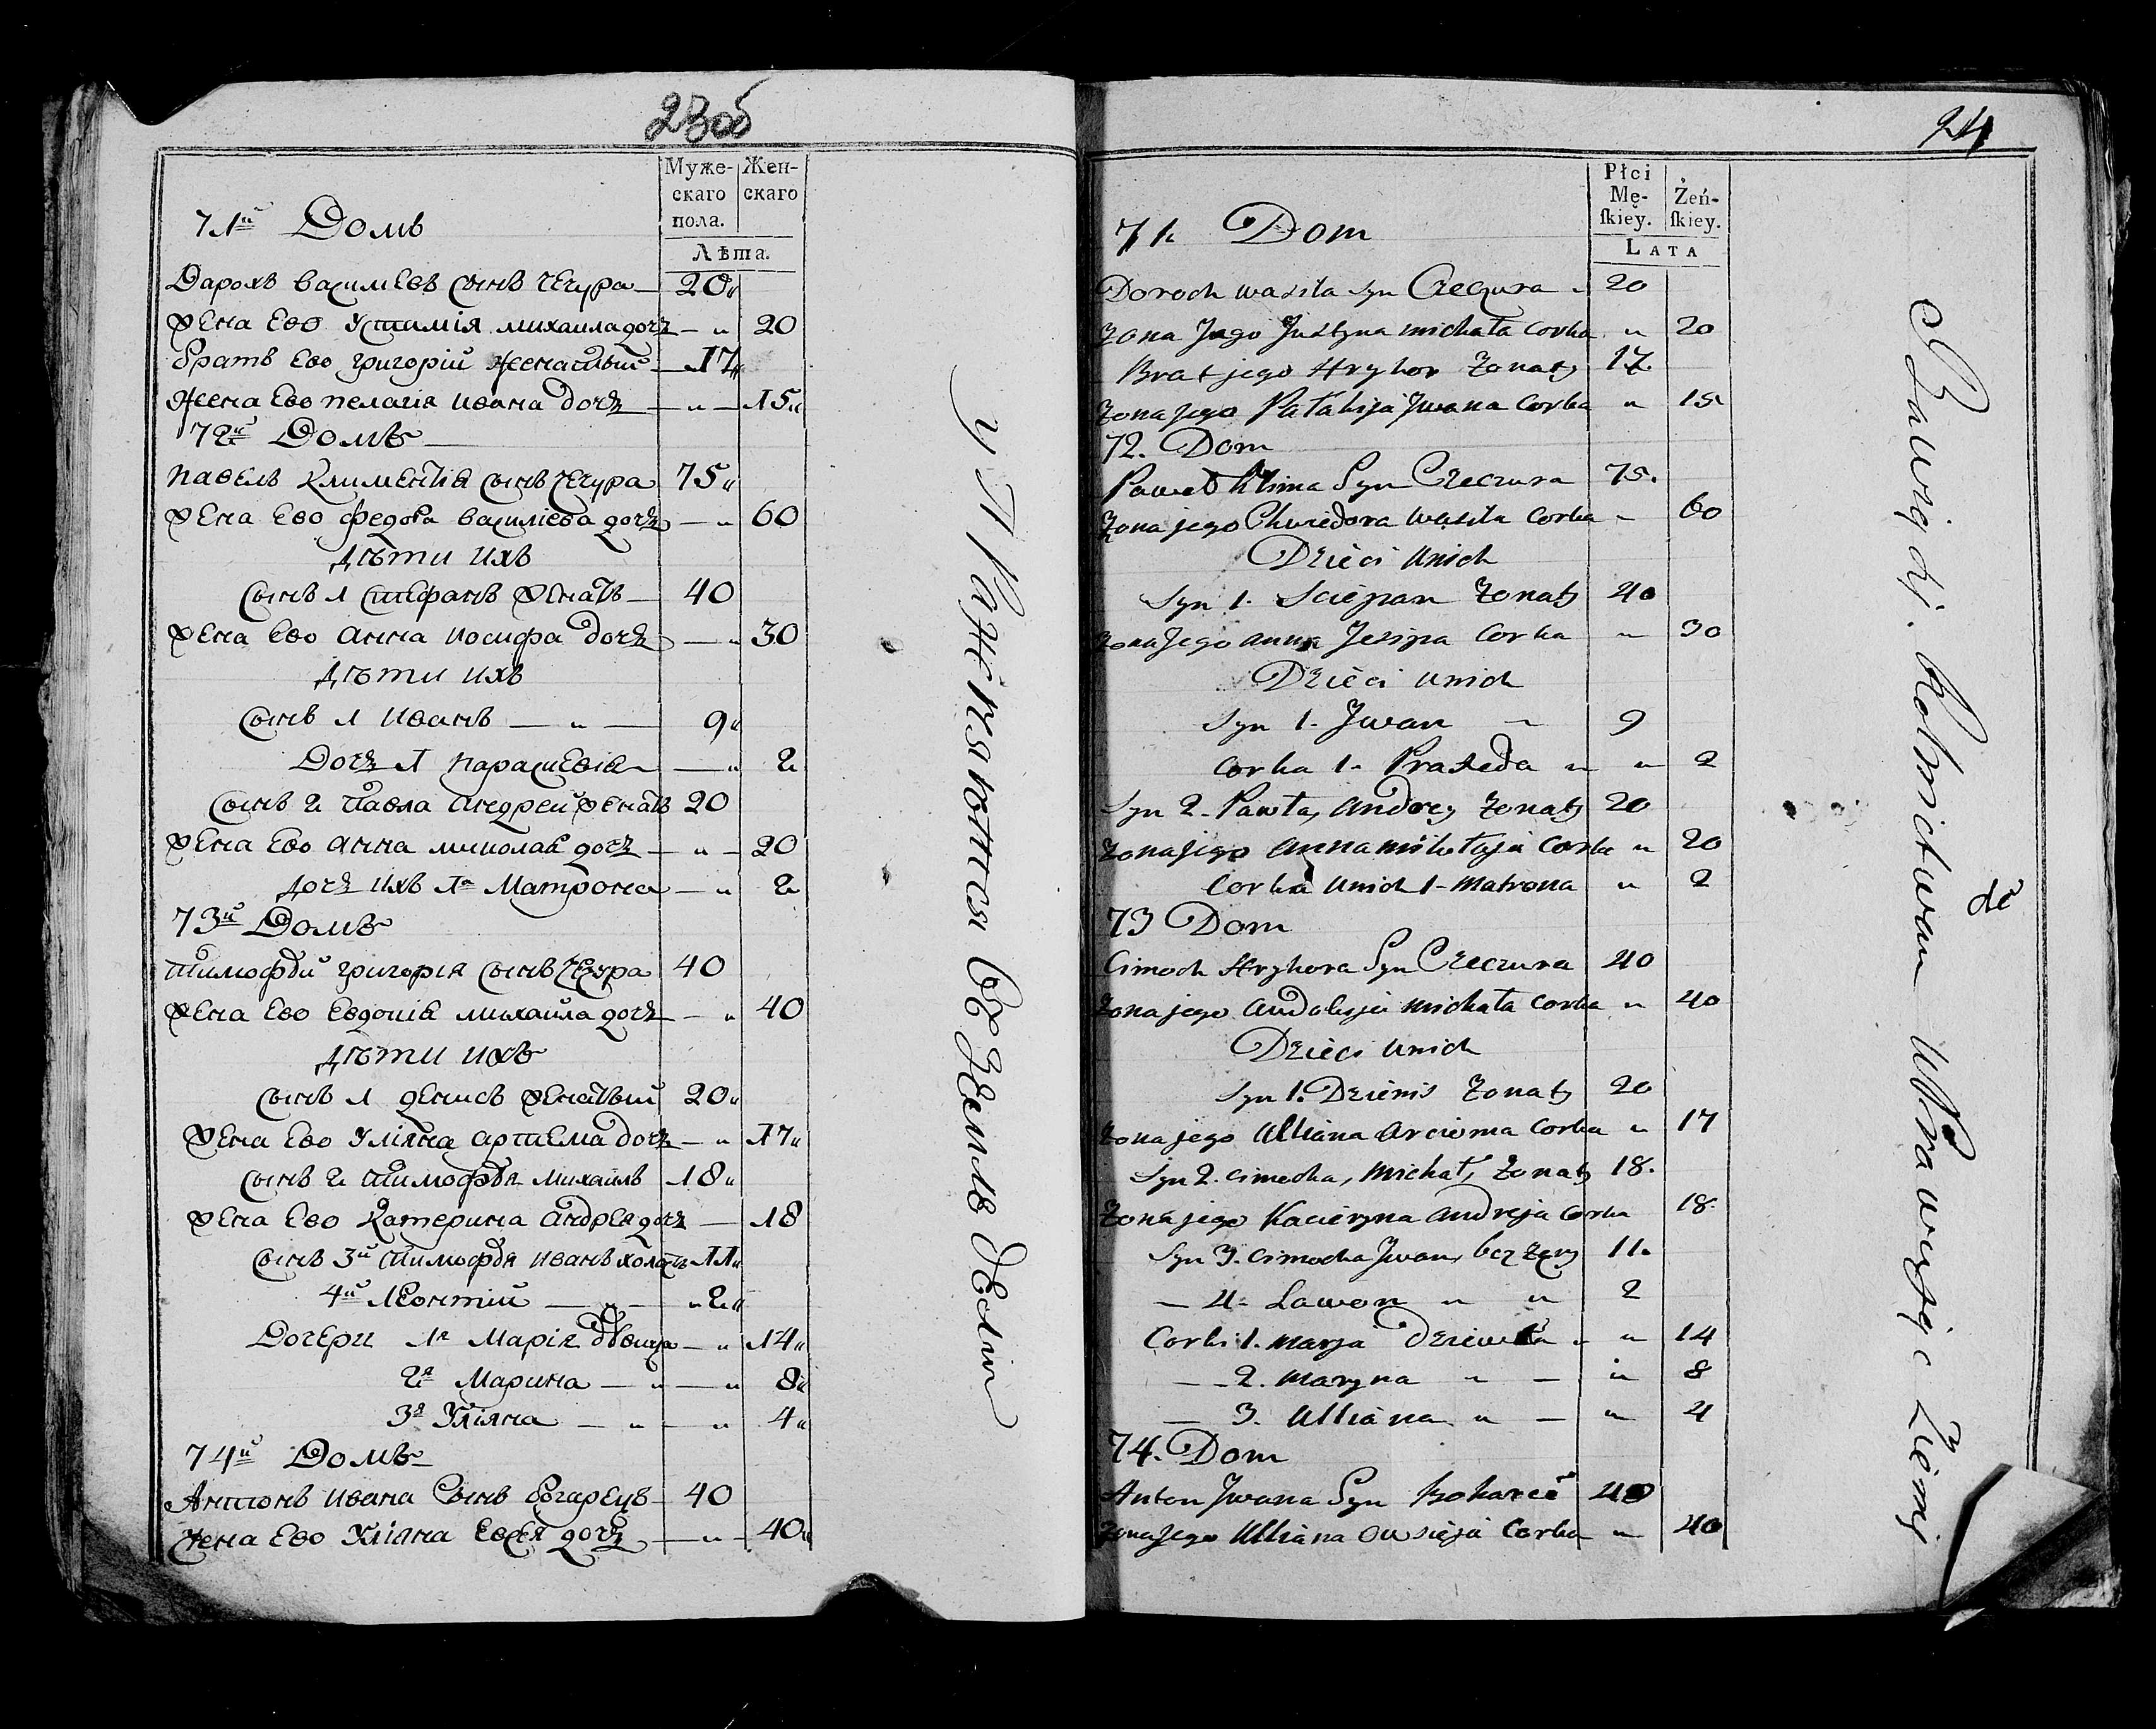 23об
Муже-
скаго
пола.
Жен-
скаго
Лѣта.
71й Домъ
Дарохъ василмевъ сынъ чечура 20
жена Ево Устимія михаила дочъ — „ 20
братъ Ево григорій женатый 17
жена Ево пелагія ивана дочъ — „ — 15
72й Домъ
павелъ Климентія сынъ чечура 75
жена Ево федора василіева дочъ — „ 60
Дѣти ихъ
сынъ 1 Стефанъ женатъ 40
жена Ево анна иосифа дочъ — „ 30
Дѣти ихъ
сынъ 1 иванъ — „ — 9
Дочъ 1 парасмевія — „ 2
сынъ 2 павла андрей женатъ 20
жена Ево анна миколая дочъ — „ — 20
дочъ ихъ 1я Матрона — „ 2
73й Домъ
тимофѣй григорія сынъ чечура 40
жена Ево Евдокія михаила дочъ — „ 40
Дѣти ихъ
сынъ 1 денисъ женатый 20
жена Ево Уліяна артиема дочъ — „ 17
сынъ 2 тимофѣя михаилъ 18
жена Ево Катерина андрея дочъ — 18
сынъ 3й тимофѣя иванъ холостъ 11
4й Леонтій — „ — „ 2
Дочери 1я Марія дѣвица — „ 14
2я Марина — „ — „ 8
3я Уліяна — „ — „ 4
74й Домъ
Антонъ ивана сынъ богарецъ 40
жена Ево Уліяна Евсея дочъ — „ — 40
24
Płci
Mę-
ſkiey.
Żeń-
ſkiey.
LATA
71. Dom
Doroch wasila syn Czeczura „ 20
żona Jego Justyna michała corka „ 20
Brat jego Hryhor żonaty 17.
żona jego Pałahija Jwana corka „ 15
72. Dom
Paweł Klima Syn Czeczura 75.
żona jego Chwiedora wasila corka „ 60
Dzieci unich
syn 1. Sciepan żonaty 40
żona Jego anna Jesipa corka „ 30
Dzieci unich
syn 1. Jwan „ 9
corka 1. Praxeda „ „ 2
Syn 2. Pawła, andrey żonaty 20
żona jego anna mikołaja corka „ 20
corka unich 1- matrona „ 2
73 Dom
Cimoch Hryhora Syn Czeczura 40
żona jego audokija michała corka „ 40
Dzieci unich
syn 1. Dzienis żonaty 20
żona jego Ulliana arcioma corka „ 17
syn 2. cimocha, michał, żonaty 18.
żona jego Kacieryna andreja corka 18.
syn 3. cimocha Jwan, bez żony 11.
— 4. Lawon „ „ 2
Corki 1. marja Dziewka „ „ 14
— — 2. maryna „ — „ 8
— 3. Ulliana „ — „ 4
74. Dom
Anton Jwana Syn Boharec 40
żona Jego Ulliana owsieja corka „ 40